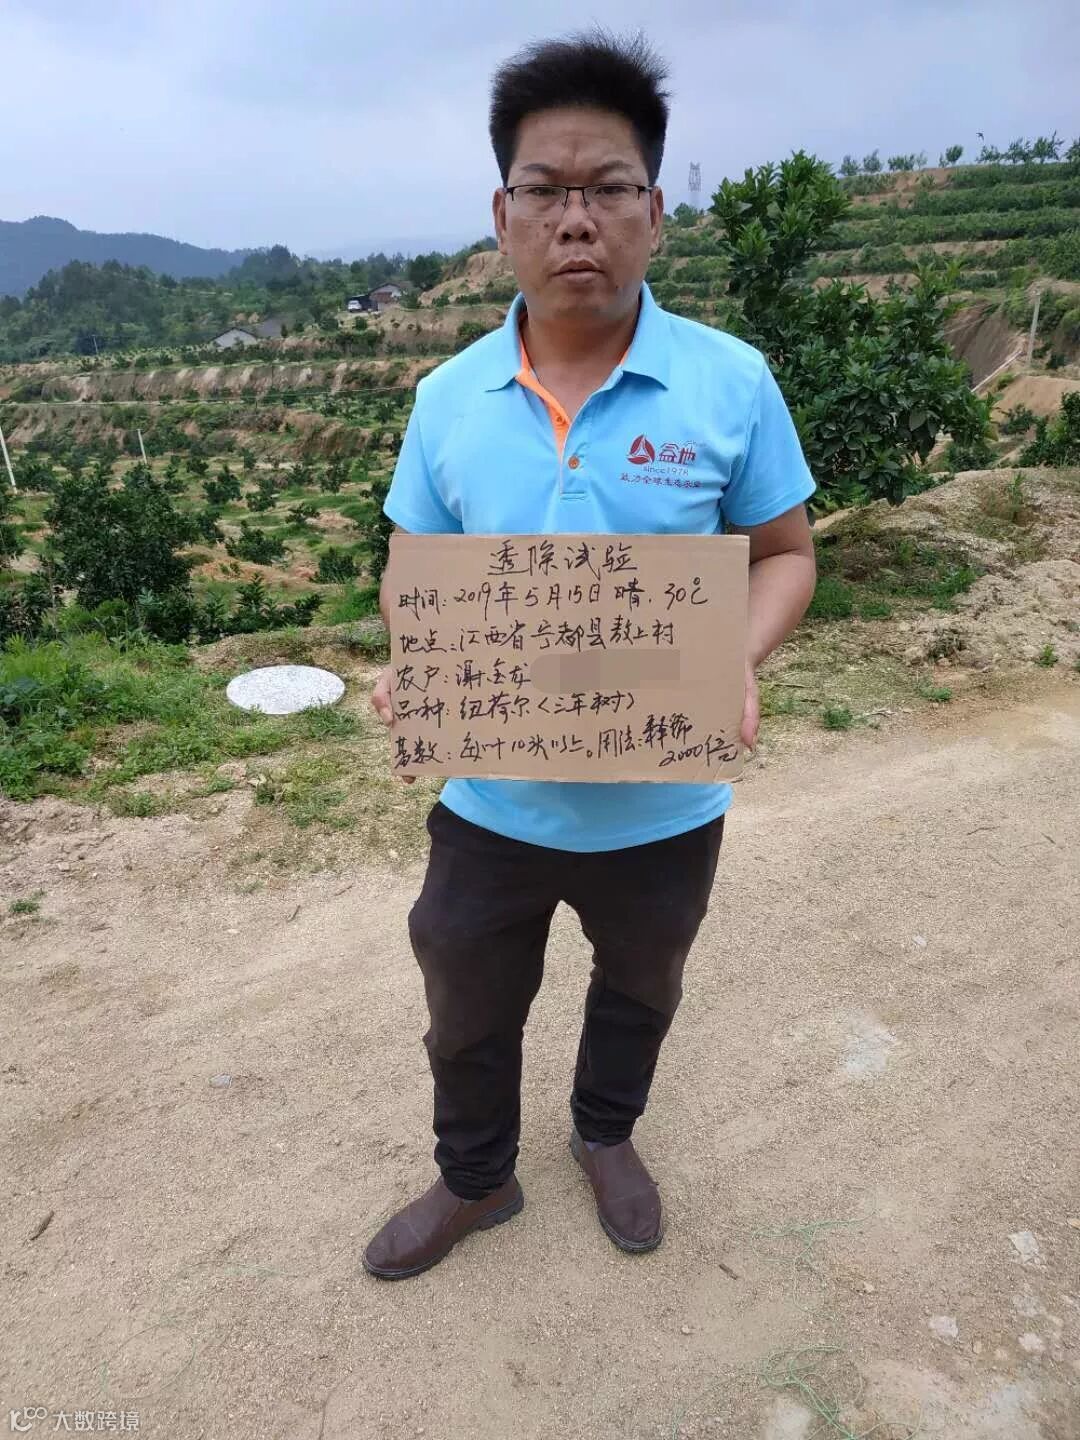 益地
since1978
致力全球生态农业
透除试验
时间:2019年5月15日 晴.30℃
地点:江西省于都县敖上村
农户:谢金龙
品种:纽荷尔(三年树)
基数:每叶10头以上。用法:稀释
2000倍
大数跨境